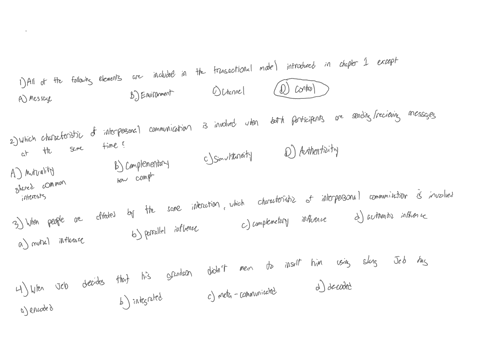 1) All of the following elements are included in the transactional model introduced in chapter 1 except
A) Message B) Environment C) Channel D) Control
2) Which characteristic of interpersonal communication is involved when both participants are sending/recieving messages
at the same time?
A) Mutuality B) Complementary C) Simultaneity D) Authenticity
shared common
interests
3) When people are affected by the same interaction, which characteristic of interpersonal communication is involved
a) mutual influence b) parallel influence c) complementary influence d) authentic influence
4) When Jeb decides that his grandson didn't mean to insult him using slang Jeb has
a) encoded b) integrated c) meta-communicated d) decoded